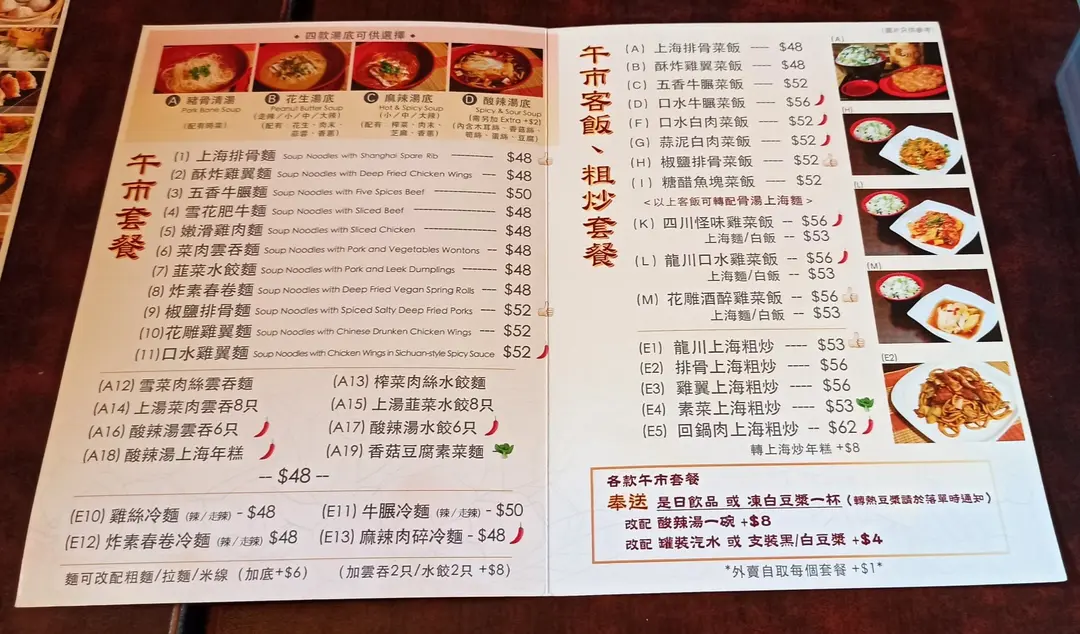 ◆ 四款湯底可供選擇 ◆
A 豬骨清湯
Pork Bone Soup
(配有時菜)
B 花生湯底
Peanut Butter Soup
(走辣/小/中/大辣)
(配有 花生、肉末、
蒜蓉、香蔥)
C 麻辣湯底
Hot & Spicy Soup
(小/中/大辣)
(配有 榨菜、肉末、
芝麻、香蔥)
D 酸辣湯底
Spicy & Sour Soup
(需另加 Extra +$2)
(內含木耳絲、香菇絲、
筍絲、蛋絲、豆腐)
午市套餐
(1) 上海排骨麵 Soup Noodles with Shanghai Spare Rib $48
(2) 酥炸雞翼麵 Soup Noodles with Deep Fried Chicken Wings -- $48
(3) 五香牛𦟌麵 Soup Noodles with Five Spices Beef $50
(4) 雪花肥牛麵 Soup Noodles with Sliced Beef $48
(5) 嫩滑雞肉麵 Soup Noodles with Sliced Chicken $48
(6) 菜肉雲吞麵 Soup Noodles with Pork and Vegetables Wontons -- $48
(7) 韮菜水餃麵 Soup Noodles with Pork and Leek Dumplings $48
(8) 炸素春卷麵 Soup Noodles with Deep Fried Vegan Spring Rolls -- $48
(9) 椒鹽排骨麵 Soup Noodles with Spiced Salty Deep Fried Porks -- $52
(10)花雕雞翼麵 Soup Noodles with Chinese Drunken Chicken Wings --- $52
(11)口水雞翼麵 Soup Noodles with Chicken Wings in Sichuan-style Spicy Sauce $52
(A12) 雪菜肉絲雲吞麵
(A13) 榨菜肉絲水餃麵
(A14) 上湯菜肉雲吞8只
(A15) 上湯韮菜水餃8只
(A16) 酸辣湯雲吞6只
(A17) 酸辣湯水餃6只
(A18) 酸辣湯上海年糕
(A19) 香菇豆腐素菜麵
-- $48 --
(E10) 雞絲冷麵 (辣/走辣) - $48
(E11) 牛𦟌冷麵 (辣/走辣) - $50
(E12) 炸素春卷冷麵 (辣/走辣) $48
(E13) 麻辣肉碎冷麵 - $48
麵可改配粗麵/拉麵/米線 (加底+$6)
(加雲吞2只/水餃2只 +$8)
午市客飯、粗炒套餐
(圖片只供參考)
(A) 上海排骨菜飯 --- $48
(B) 酥炸雞翼菜飯 --- $48
(C) 五香牛𦟌菜飯 --- $52
(D) 口水牛𦟌菜飯 --- $56
(F) 口水白肉菜飯 --- $52
(G) 蒜泥白肉菜飯 --- $52
(H) 椒鹽排骨菜飯 --- $52
(I) 糖醋魚塊菜飯 --- $52
<以上客飯可轉配骨湯上海麵>
(K) 四川怪味雞菜飯 -- $56
上海麵/白飯 -- $53
(L) 龍川口水雞菜飯 -- $56
上海麵/白飯 -- $53
(M) 花雕酒醉雞菜飯 -- $56
上海麵/白飯 -- $53
(E1) 龍川上海粗炒 ---- $53
(E2) 排骨上海粗炒 ---- $56
(E3) 雞翼上海粗炒 ---- $56
(E4) 素菜上海粗炒 ---- $53
(E5) 回鍋肉上海粗炒 -- $62
轉上海炒年糕 +$8
(A)
(H)
(L)
(M)
(E2)
各款午市套餐
奉送 是日飲品 或 凍白豆漿一杯 (轉熱豆漿請於落單時通知)
改配 酸辣湯一碗 +$8
改配 罐裝汽水 或 支裝黑/白豆漿 +$4
*外賣自取每個套餐 +$1*